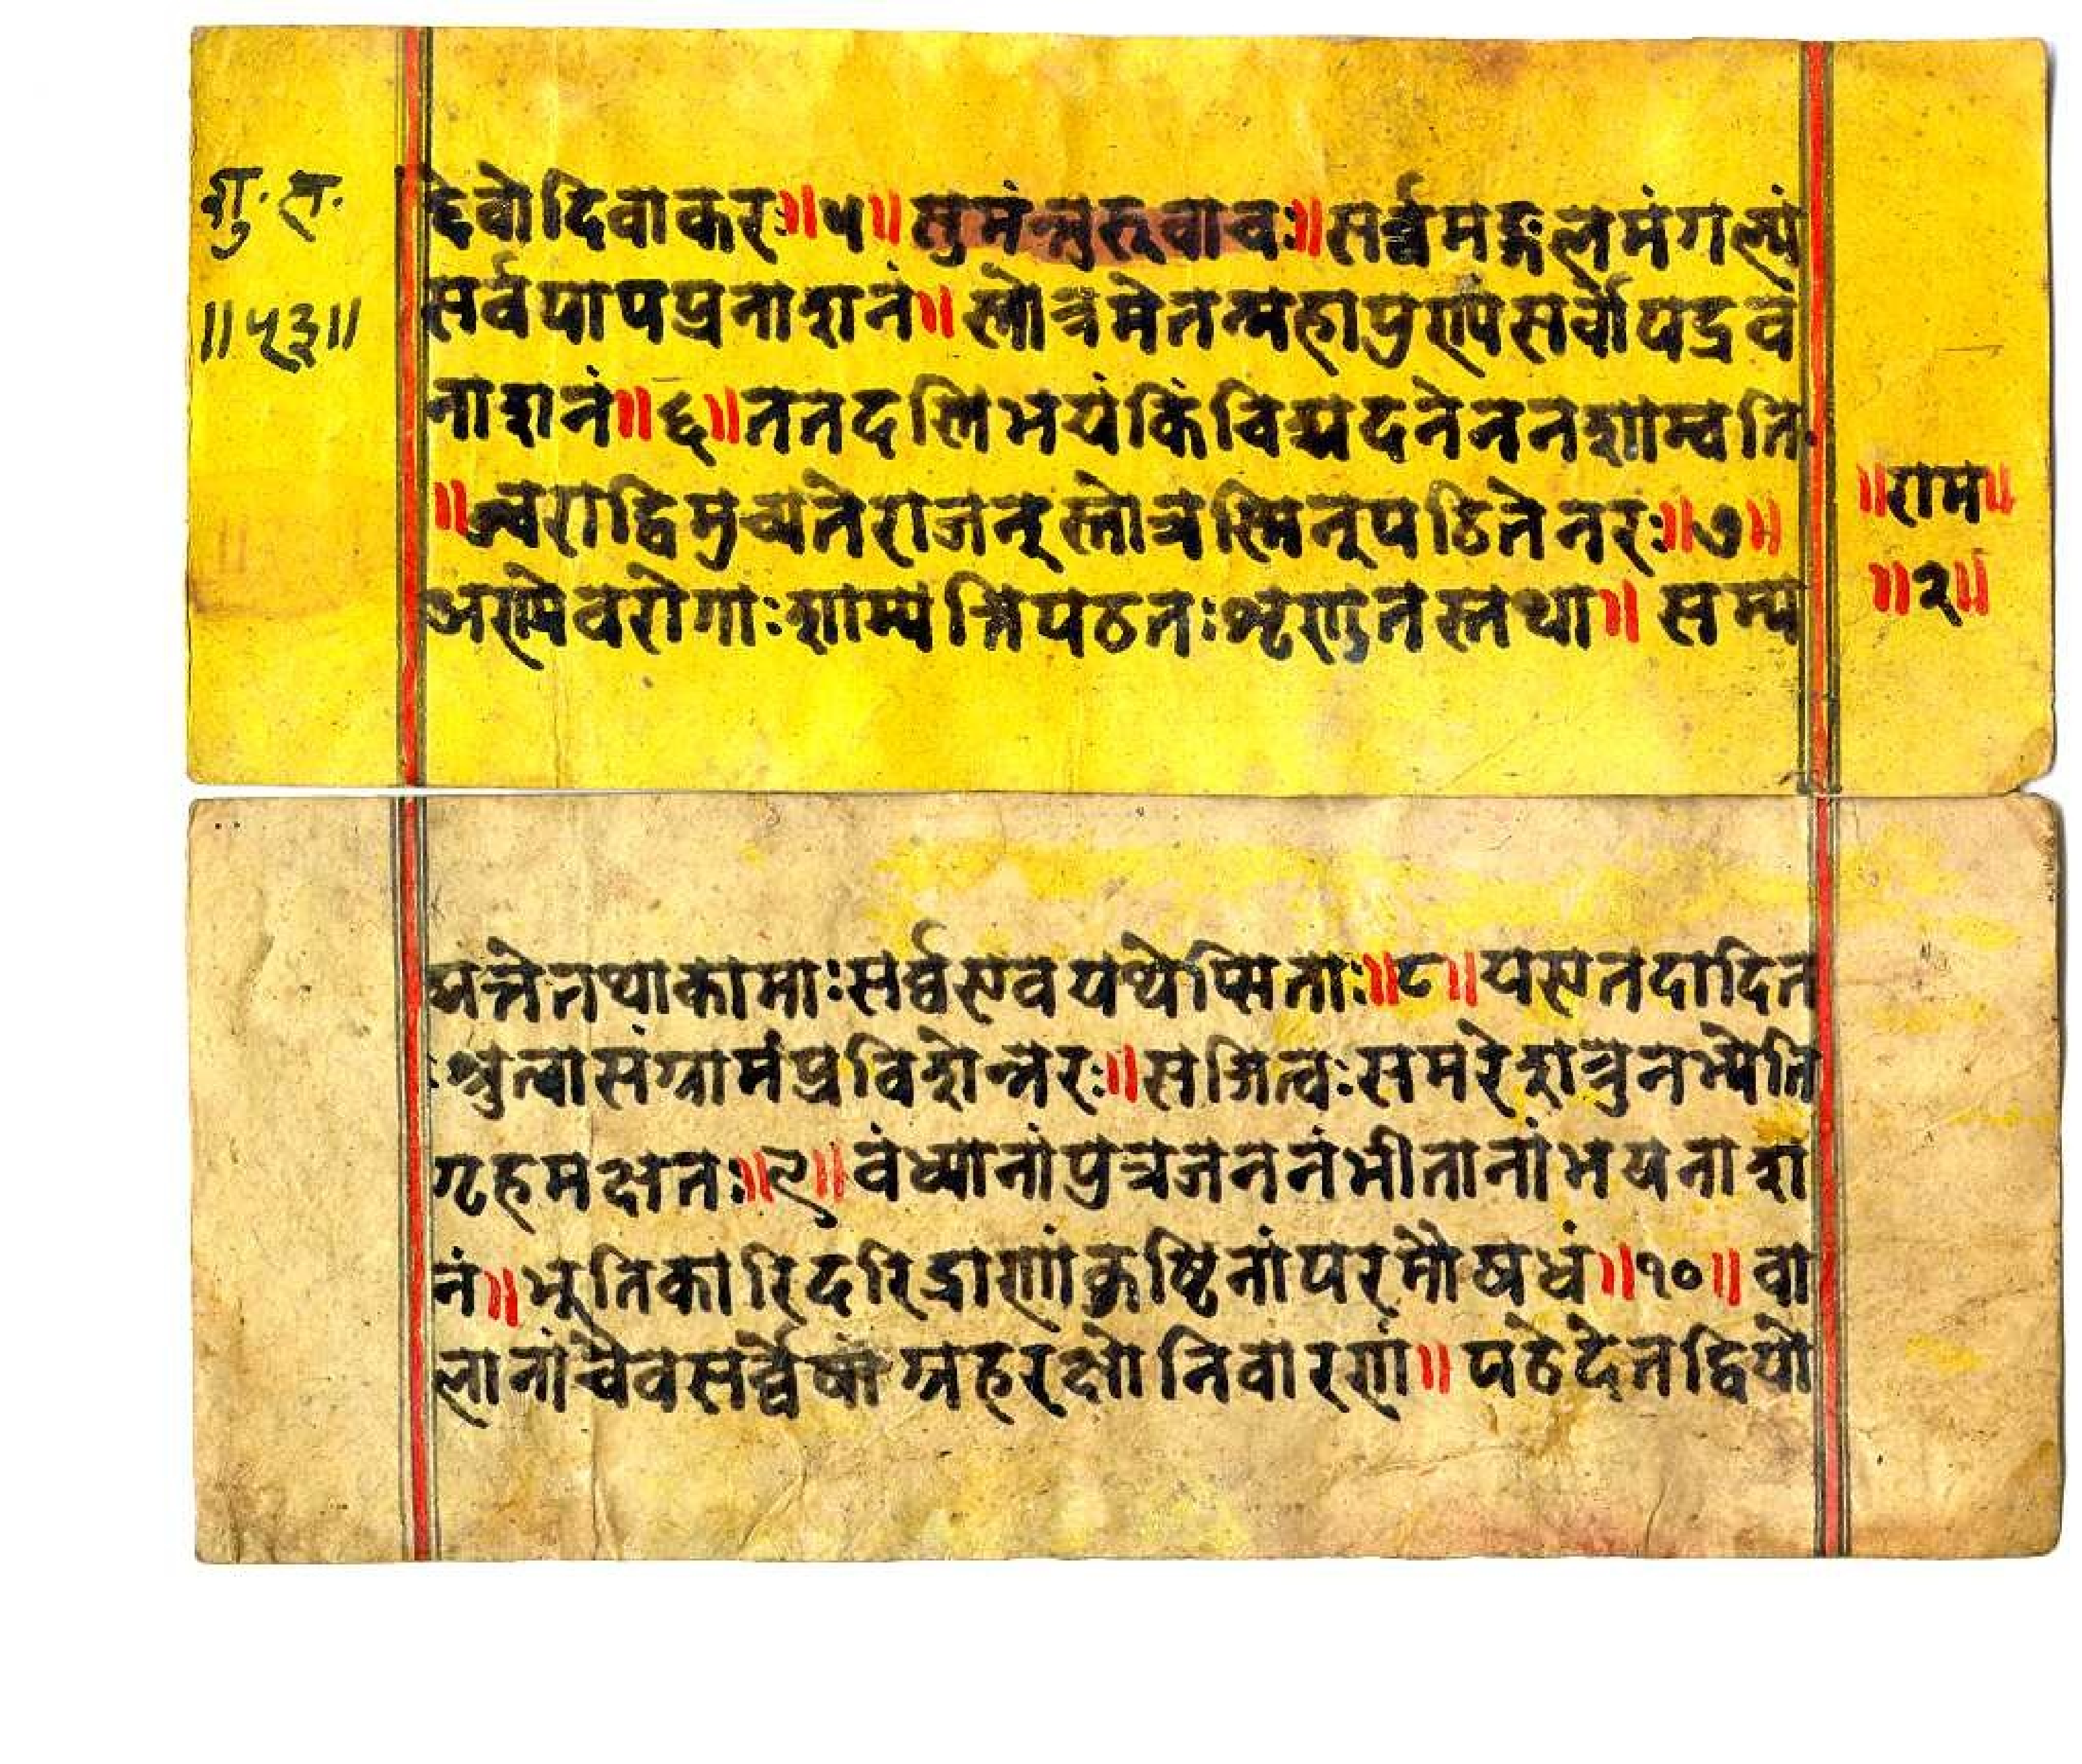 गु॰ त॰
॥५३॥
देवोदिवाकरः॥५॥सुमंन्त्रुरुवाचः॥सर्व्वमङ्गलमंगल्यं
सर्वपापप्रनाशनं॥स्तोत्रमेतन्महापुण्यंसर्वोपद्रव
नाशनं॥६॥नतदस्तिभयंकिंचिद्यदनेननशाम्यति
॥ज्वराद्विमुच्यतेराजन्स्तोत्रेस्मिन्पठितेनरः॥७॥
अण्येवरोगाःशाम्यन्तिपठतःशृणुतस्तथा॥सम्प
॥राम॥
॥२॥
द्यन्तेतथाकामाःसर्व्वएवयथेप्सिताः॥८॥यएतदादित
ःश्रुत्वासंग्रामंप्रविशेन्नरः॥सजित्वःसमरेशत्रुनभ्येति
गृहमक्षतः॥९॥वंध्यानांपुत्रजननंभीतानांभयनाश
नं॥भूतिकारिदरिद्राणांकुष्टिनांपरमौषधं॥१०॥वा
लानांचैवसर्व्वेषांग्रहरक्षोनिवारणं॥पठेदेतद्वियो